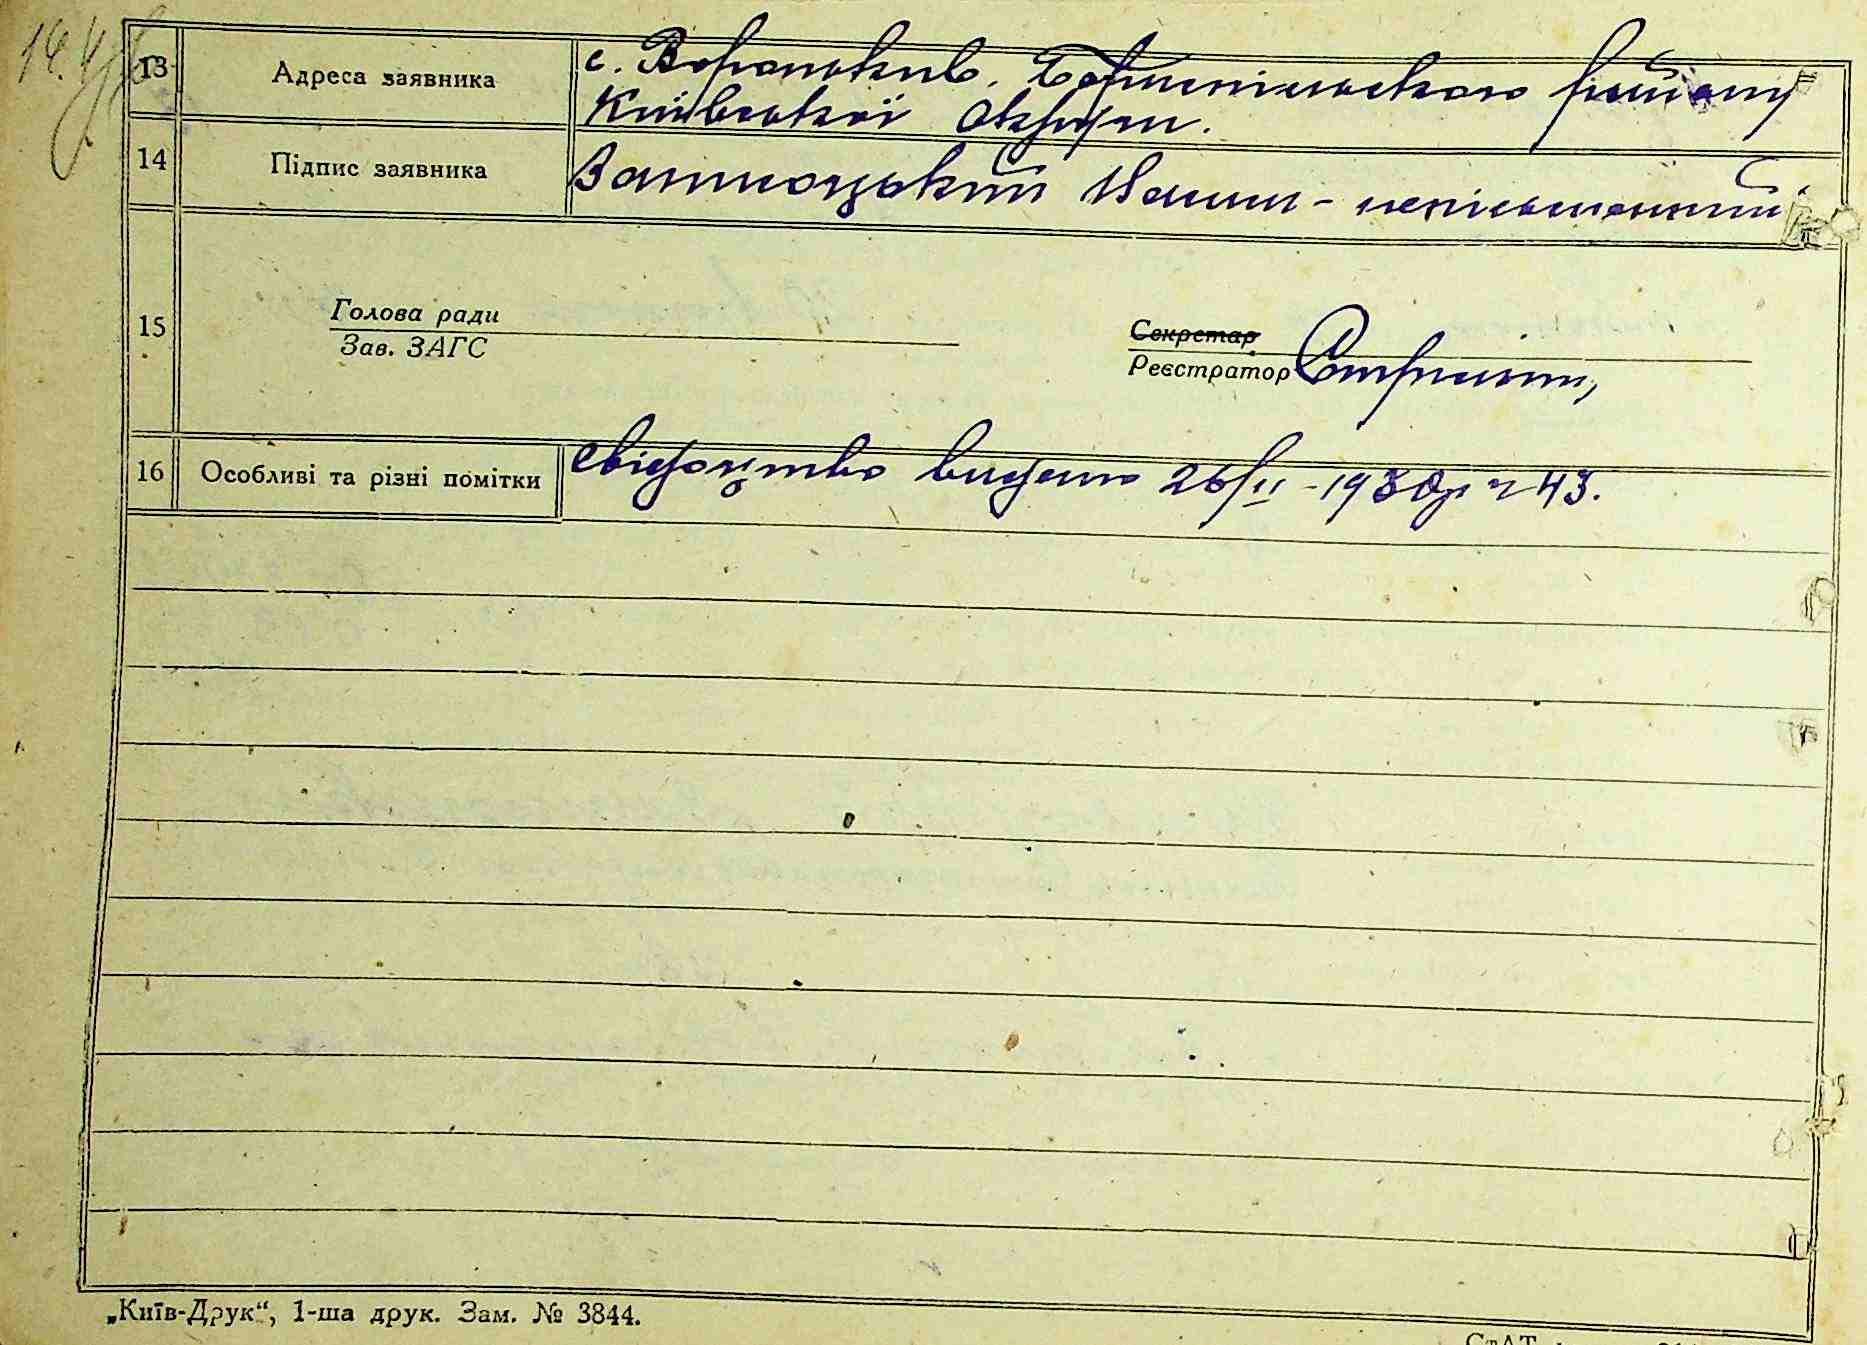 13 Адреса заявника с. Вороньків, Бориспільського району
Київської Округи.
14 Підпис заявника Іван - неписьменний
15 Голова ради
Зав. ЗАГС
Секретар
Реєстратор
16 Особливі та різні помітки свідоцтво видано 26/II - 1930р ч 43.
„Київ-Друк“, 1-ша друк. Зам. № 3844.